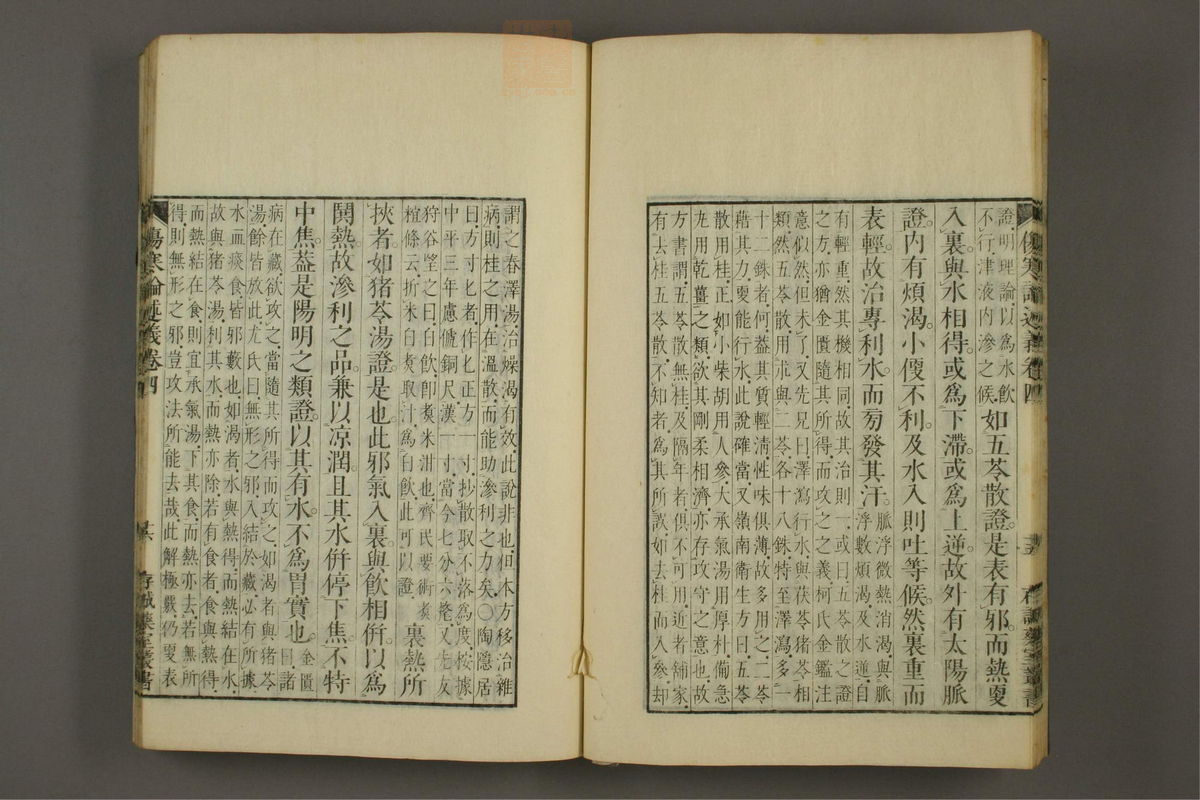 傷寒論述義卷四 十五 存誠藥室叢書
證明理論以爲水飲
不行津液內滲之候
如五苓散證是表有邪而熱更
入裏與水相得或爲下滯或爲上逆故外有太陽脈
證內有煩渴小便不利及水入則吐等候然裏重而
表輕故治專利水而旁發其汗
脈浮微熱消渴與脈
浮數煩渴及水逆自
有輕重然其機相同故其治則一或曰五苓散之證
之方亦猶金匱隨其所得而攻之之義柯氏金鑑注
意似然但未了又先兄曰澤瀉行水與茯苓猪苓相
類然五苓散用朮與二苓各十八銖特至澤瀉多一
十二銖者何蓋其質輕淸性味俱薄故多用之二苓
藉其力更能行水此說確當又嶺南衛生方曰五苓
散用桂正如小柴胡用人參大承氣湯用厚朴備急
丸用乾薑之類欲其剛柔相濟亦存攻守之意也故
方書謂五苓散無桂及隔年者俱不可用近者舖家
有去桂五苓散不知者爲其所誤如去桂而入參却
謂之春澤湯治燥渴有效此說非也但本方移治雜
病則桂之用在溫散而能助滲利之力矣○陶隱居
曰方寸匕者作匕正方一寸抄散取不落爲度按據
中平三年慮俿銅尺漢一寸當今七分六釐又先友
狩谷望之曰白飲卽煑米泔也齊民要術煑
條云折米白煑取汁爲白飲此可以證
裏熱所
挾者如猪苓湯證是也此邪氣入裏與飲相併以爲
鬨熱故滲利之品兼以凉潤且其水併停下焦不特
中焦蓋是陽明之類證以其有水不爲胃實也
金匱
曰諸
病在藏欲攻之當隨其所得而攻之如渴者與猪苓
湯餘皆放此尤氏曰無形之邪入結於藏必有所據
水血痰食皆邪藪也如渴者水與熱得而熱結在水
故與猪苓湯利其水而熱亦除若有食者食與熱得
而熱結在食則宜承氣湯下其食而熱亦去若無所
得則無形之邪豈攻法所能去哉此解極覈仍更表
傷寒論述義卷四 十六 存誠藥室叢書